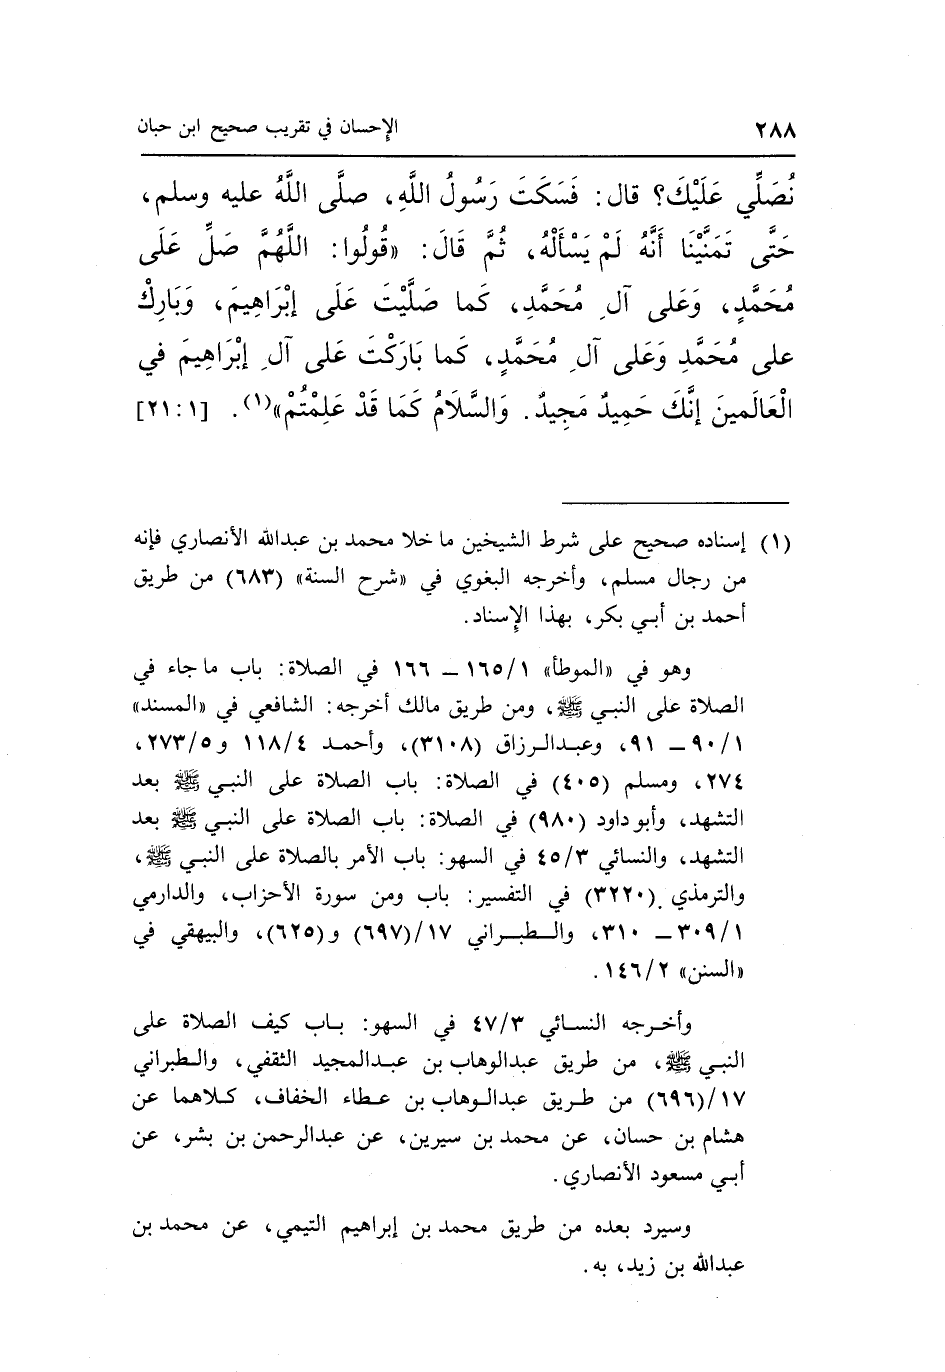 ٢٨٨ الإحسان في تقريب صحيح ابن حبان
نُصَلِّي عَلَيْكَ؟ قال: فَسَكَتَ رَسُولُ اللَّهِ، صلَّى اللَّهُ عليه وسلم،
حَتَّى تَمَنَّيْنَا أَنَّهُ لَمْ يَسْأَلْهُ، ثُمَّ قَالَ: «قُولُوا: اللَّهُمَّ صَلِّ عَلَى
مُحَمَّدٍ، وَعَلى آلِ مُحَمَّدٍ، كَما صَلَّيْتَ عَلَى إبْرَاهِيمَ، وَبَارِكْ
على مُحَمَّدٍ وَعَلى آلِ مُحَمَّدٍ، كَما بَارَكْتَ عَلى آلِ إبْرَاهِيمَ في
الْعَالَمينَ إنَّكَ حَمِيدٌ مَجِيدٌ. وَالسَّلَامُ كَمَا قَدْ عَلِمْتُمْ»(١). [٢١:١]
(١) إسناده صحيح على شرط الشيخين ما خلا محمد بن عبدالله الأنصاري فإنه
من رجال مسلم، وأخرجه البغوي في «شرح السنة» (٦٨٣) من طريق
أحمد بن أبي بكر، بهذا الإسناد.
وهو في «الموطأ» ١٦٥/١ ــ ١٦٦ في الصلاة: باب ما جاء في
الصلاة على النبي ﷺ، ومن طريق مالك أخرجه: الشافعي في «المسند»
٩٠/١ ــ ٩١، وعبدالرزاق (٣١٠٨)، وأحمد ١١٨/٤ و٢٧٣/٥،
٢٧٤، ومسلم (٤٠٥) في الصلاة: باب الصلاة على النبي ﷺ بعد
التشهد، وأبو داود (٩٨٠) في الصلاة: باب الصلاة على النبي ﷺ بعد
التشهد، والنسائي ٤٥/٣ في السهو: باب الأمر بالصلاة على النبي ﷺ،
والترمذي (٣٢٢٠) في التفسير: باب ومن سورة الأحزاب، والدارمي
٣٠٩/١ ــ ٣١٠، والطبراني ١٧/(٦٩٧) و(٦٢٥)، والبيهقي في
«السنن» ١٤٦/٢.
وأخرجه النسائي ٤٧/٣ في السهو: باب كيف الصلاة على
النبي ﷺ، من طريق عبدالوهاب بن عبدالمجيد الثقفي، والطبراني
١٧/(٦٩٦) من طريق عبدالوهاب بن عطاء الخفاف، كلاهما عن
هشام بن حسان، عن محمد بن سيرين، عن عبدالرحمن بن بشر، عن
أبي مسعود الأنصاري.
وسيرد بعده من طريق محمد بن إبراهيم التيمي، عن محمد بن
عبدالله بن زيد، به.